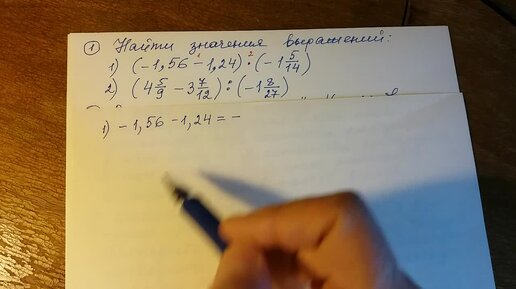 ① Найти значения выражений:
1) (-1,56 - 1,24) : (-1 5/14)
1 2
2) (4 5/9 - 3 7/12) : (-1 8/27)
1) -1,56 - 1,24 = -